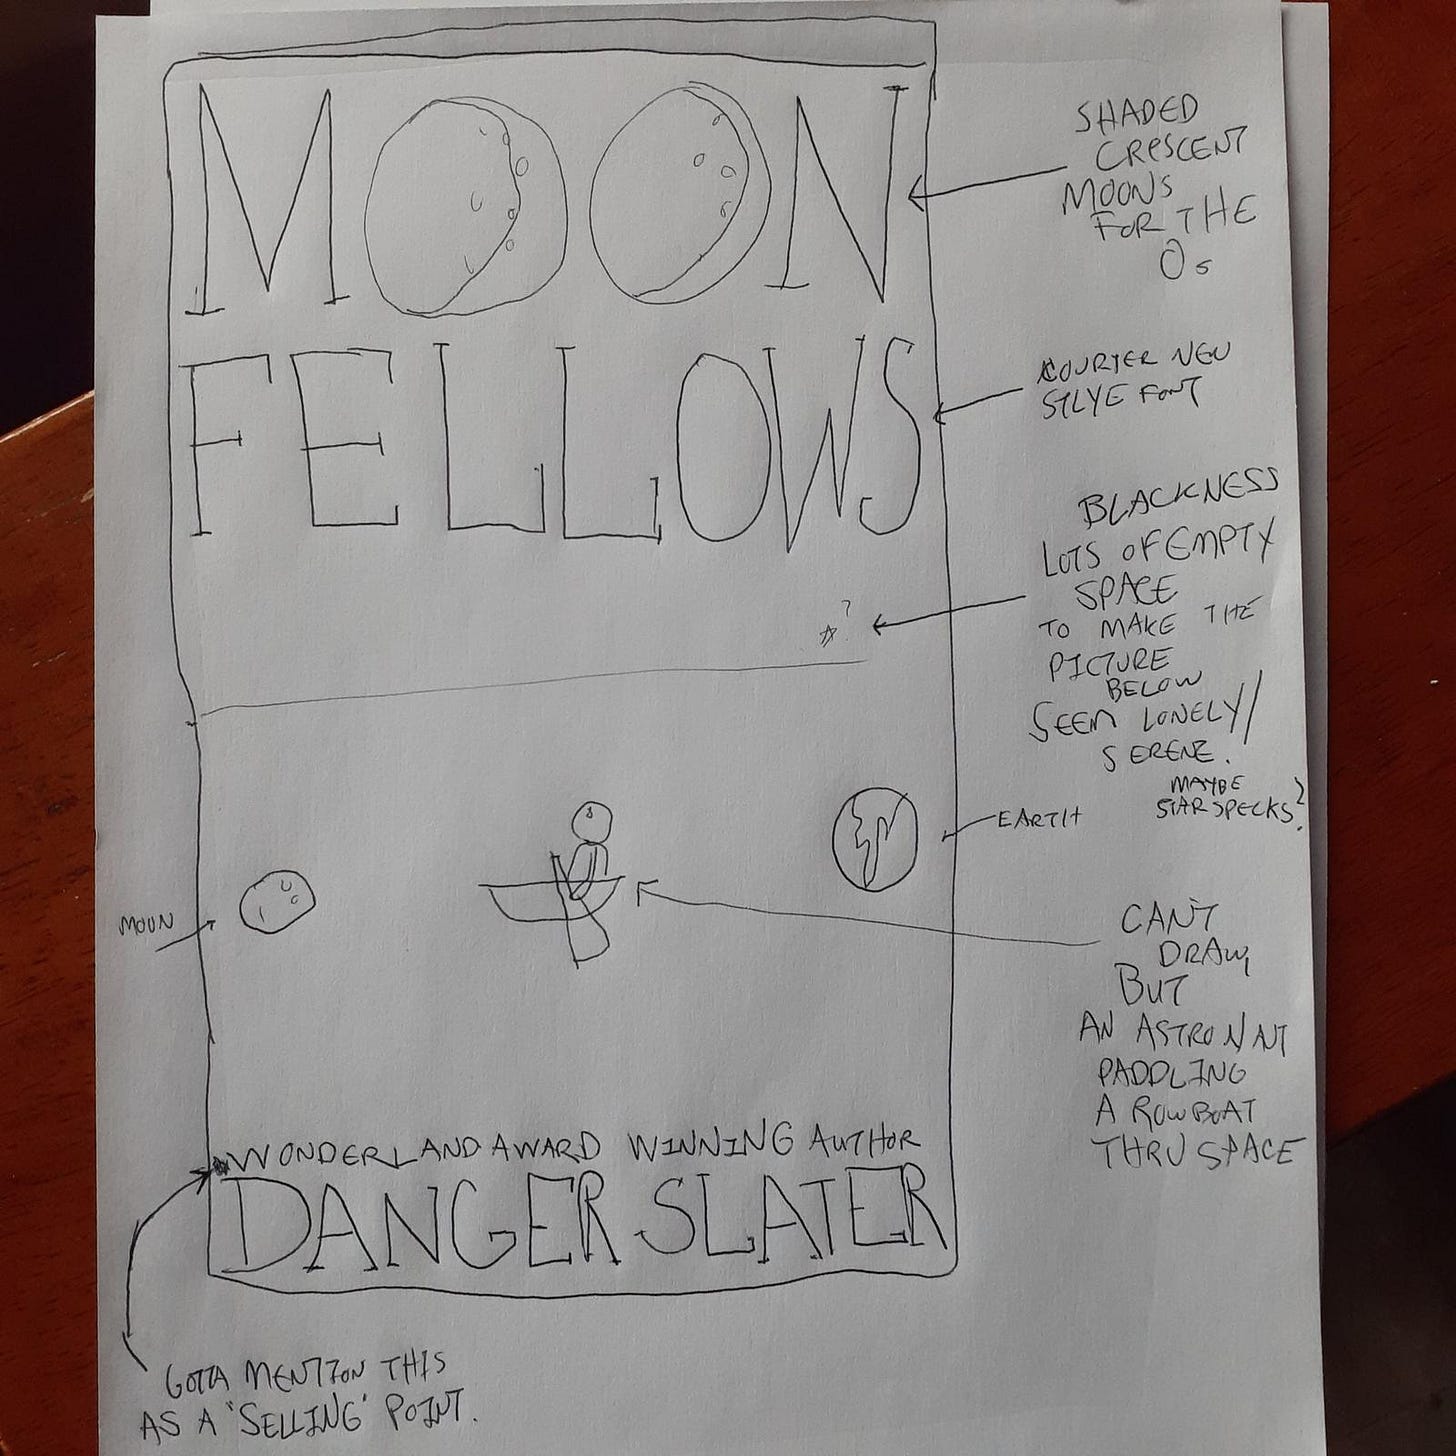 MOON
FELLOWS
SHADED
CRESCENT
MOONS
FOR THE
Os
COURIER NEW
STLYE FONT
BLACKNESS
LOTS OF EMPTY
SPACE
TO MAKE THE
PICTURE
BELOW
SEEM LONELY/
SERENE.
MAYBE
STAR SPECKS?
?
EARTH
MOON
CAN'T
DRAW,
BUT
AN ASTRONAUT
PADDLING
A ROWBOAT
THRU SPACE
WONDERLAND AWARD WINNING AUTHOR
DANGER SLATER
GOTTA MENTION THIS
AS A "SELLING" POINT.